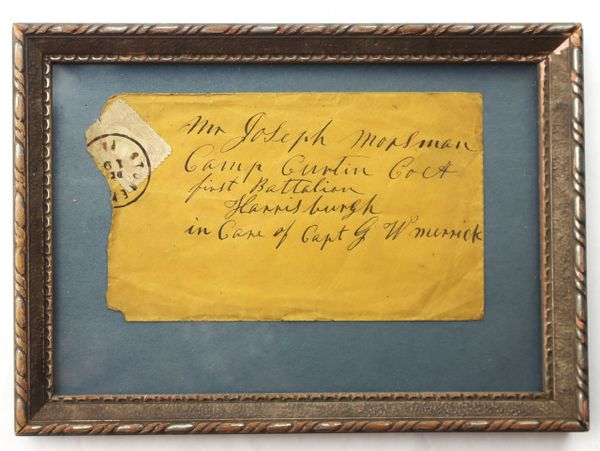 Mr Joseph Morsman
Camp Curtin Co A
first Battalion
Harrisburgh
in Care of Capt G W merrick